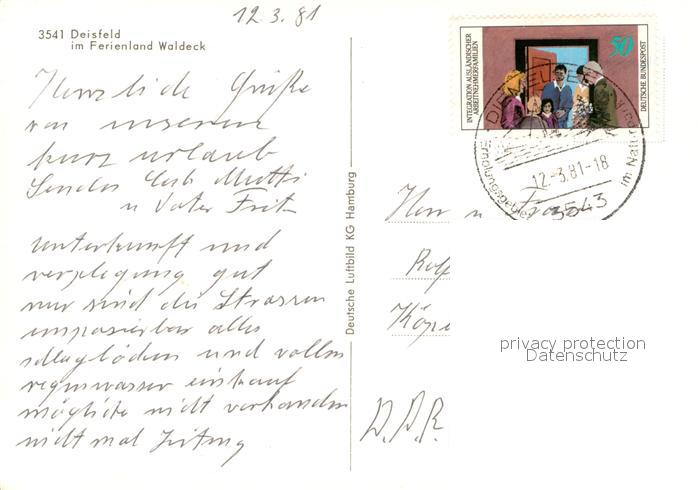 12.3.81
3541 Deisfeld
im Ferienland Waldeck
Herzliche Grüße
von unserem
kurz urlaub
Senden Euch Mutti
u Vater Fritz
Unterkunft und
verplegung gut
nur sind die Strassen
unpasierbar alles
schlaglöcher und voller
regenwasser einkauf
möglichk nicht vorhanden
nicht mal Zeitung
Deutsche Luftbild KG Hamburg
INTEGRATION AUSLÄNDISCHER
ARBEITNEHMERFAMILIEN
50
DEUTSCHE BUNDESPOST
Erholungsgebiet im Natur
12.-3.81-18
3543
Herrn u Frau
Rolf
Köpe
D.D.R.
privacy protection
Datenschutz